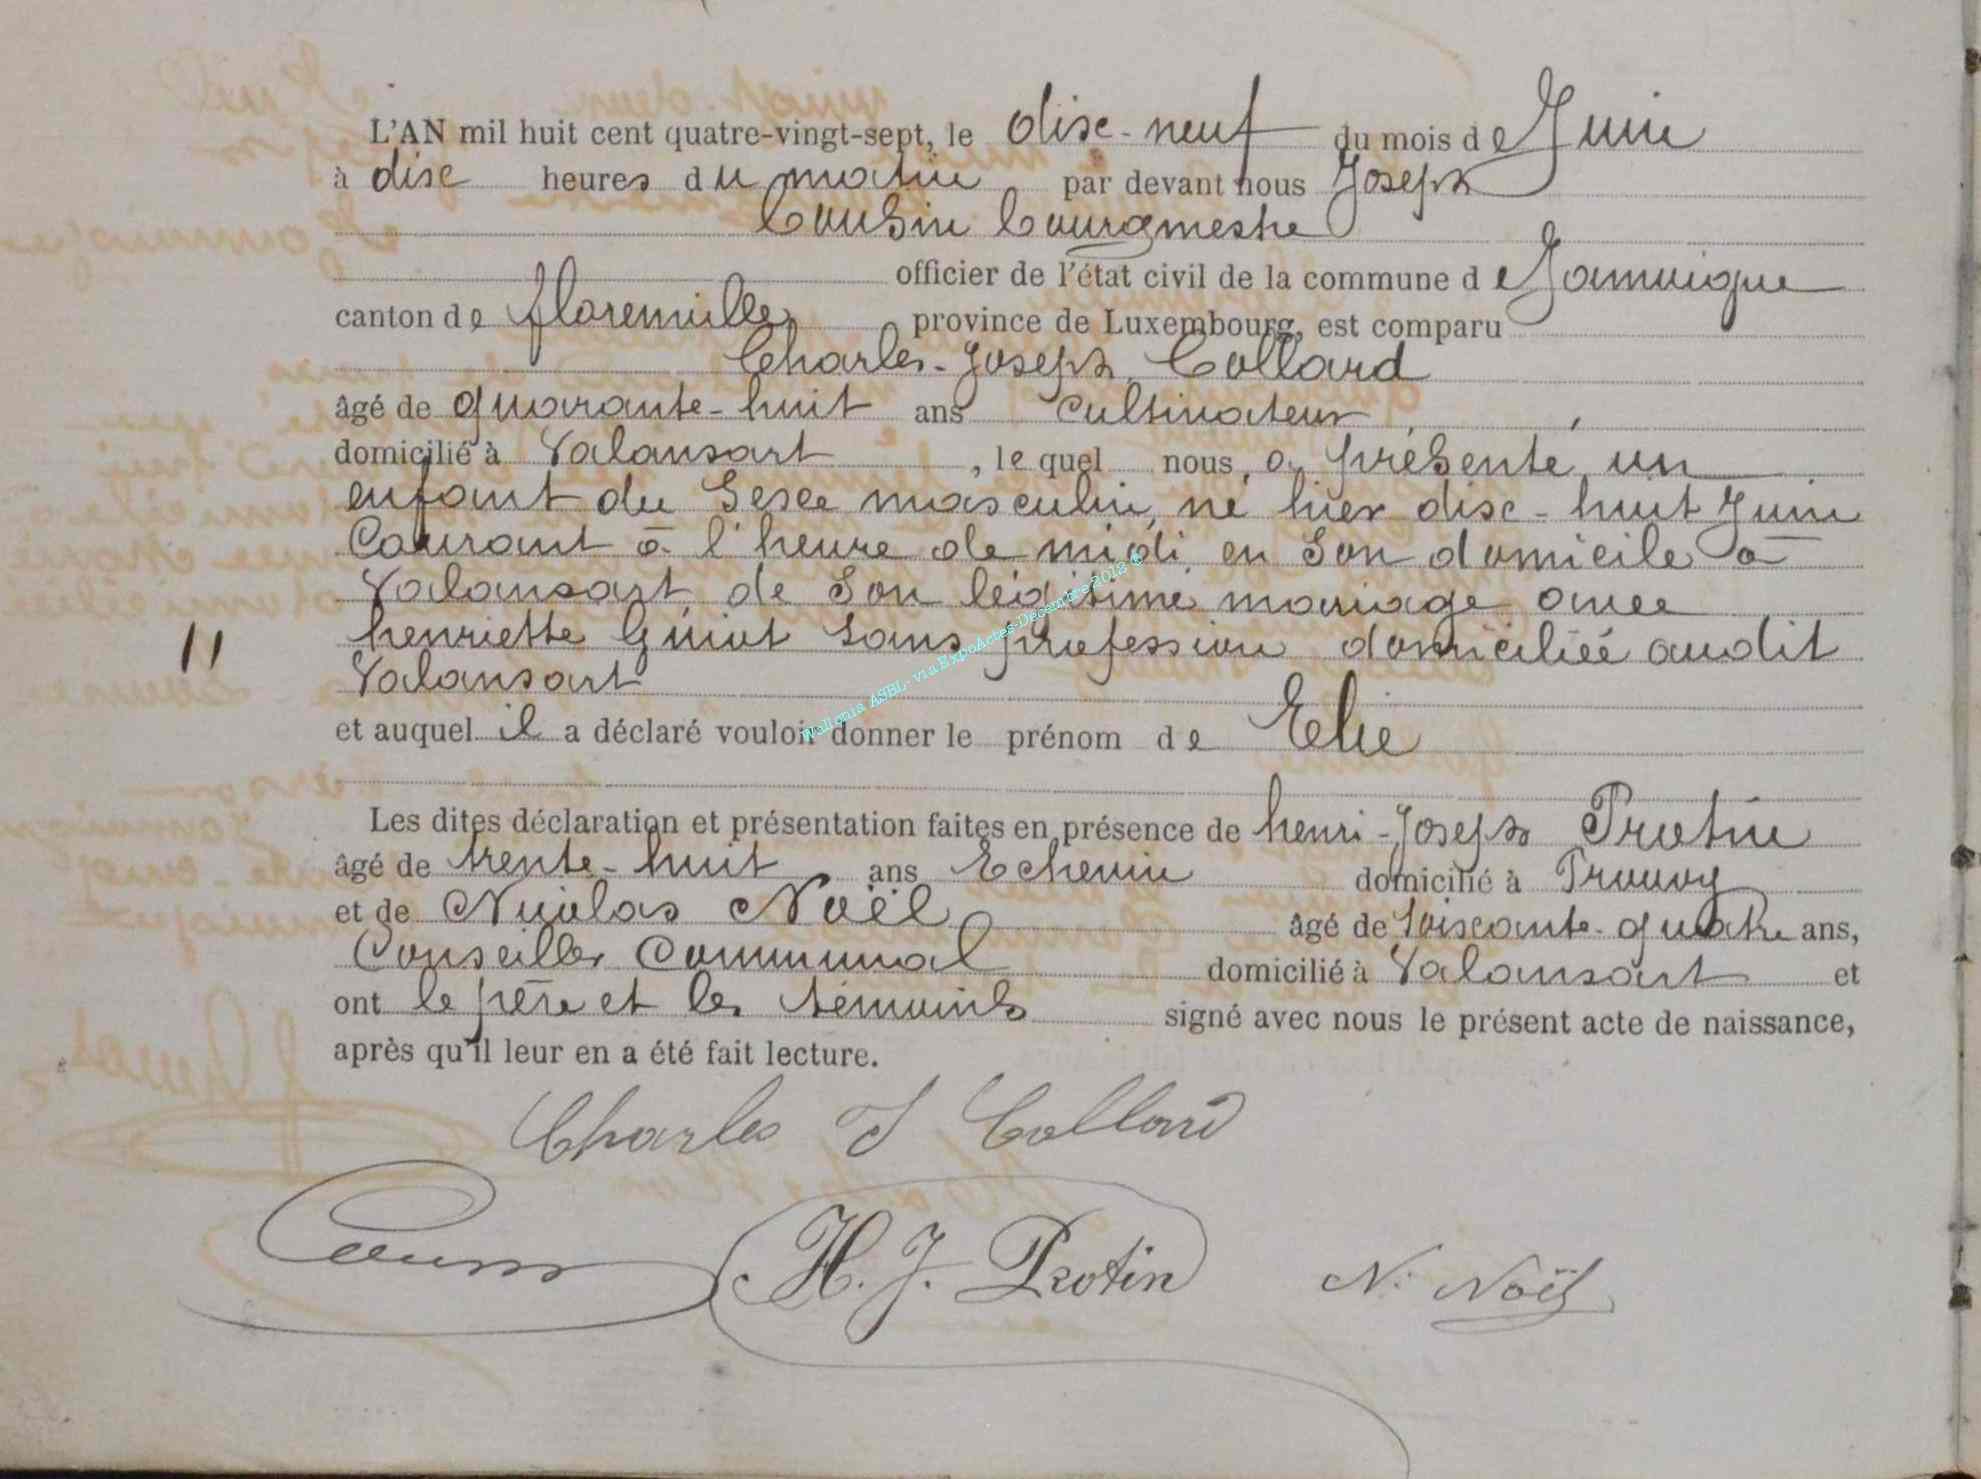 L'AN mil huit cent quatre-vingt-sept, le dix-neuf du mois de Juin
à dix heures du matin par devant nous Joseph
Cousin bourgmestre
officier de l'état civil de la commune de Jamoigne
canton de florenville province de Luxembourg, est comparu
Charles-Joseph Collard
âgé de quarante-huit ans cultivateur,
domicilié à Valansart, lequel nous a présenté un
enfant du sexe masculin, né hier dix-huit Juin
Courant à l'heure de midi en son domicile à
Valansart, de son légitime mariage avec
henriette Guiot sans profession domiciliée audit
11 Valansart
et auquel il a déclaré vouloir donner le prénom de Elie
Les dites déclaration et présentation faites en présence de henri-Joseph Protin
âgé de trente-huit ans Echevin domicilié à Prouvy
et de Nicolas Noël âgé de soixante-quatre ans,
Conseiller Communal domicilié à Valansart et
ont le père et les témoins signé avec nous le présent acte de naissance,
après qu'il leur en a été fait lecture.
Charles J Collard
Cousin H. J. Protin N. Noël
Wallonia ASBL - via ExpoActes-Décembre 2018 ©